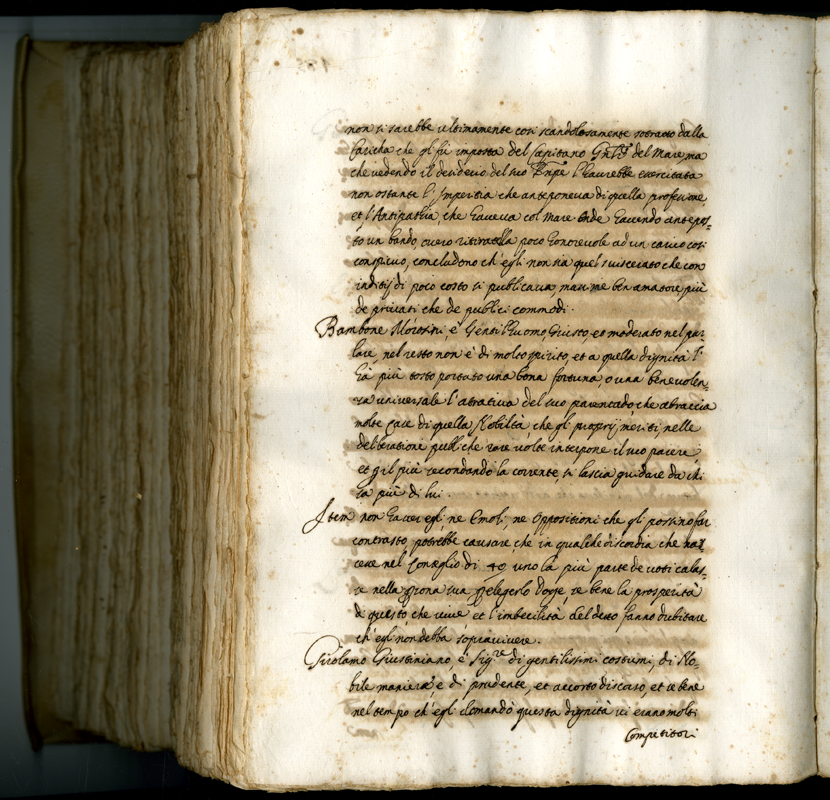 non si sarebbe ultimamente così scandolosamente sotratto dalla
Caricha che gl fù imposta del Capitano Gnl del Mare, ma
che vedendo il desiderio del suo Pnpe l'haverebbe exercitata
non ostante l'Imperitia che anteponeva di quella professione,
et l'Antipathia, che haveva col Mare onde havendo antepos-
to un bando, overo ritiratella poco honorevole ad un carico così
conspicuo, concludono ch'egli non sia quel suiscerato che con
inditij di poco costo si publicava, mà sí me ben amatore più
de privati che de publici commodi.
Bambone Morosini, è Gentilhuomo, Giusto, et moderato nel par-
lare, nel resto non è di molto spirito, et a quella dignità l'
hà più tosto portato una bona fortuna, o una benevolen-
za universale l'atrativa del suo parentado, che abraccia
molte Case di quella Nobiltà che gl proprij meriti, nelle
deliberatione publiche rare volte interpone il suo parere,
et gil più secondando la corrente, si lascia guidare da chi
sa più di lui.
Item non haver egli ne Emoli, ne Oppositioni che gl possino far
contrasto, potrebbe causare che in qualche discordia che nas-
cesse nel Conseglio di 40 uno la più parte de voti calas-
se nella psona sua p elegerlo Doge, se bene la prosperità
di questo, che vive et l'imbecilità del detto fanno dubitare
ch'egl non debba sopravivere.
Girolamo Giustiniano, è Sigre di gentilissimi costumi, di No-
bile maniera è di prudente, et accorto discorso, et se bene
nel tempo ch'egli domandò questa dignità vi erano molti
Competitori